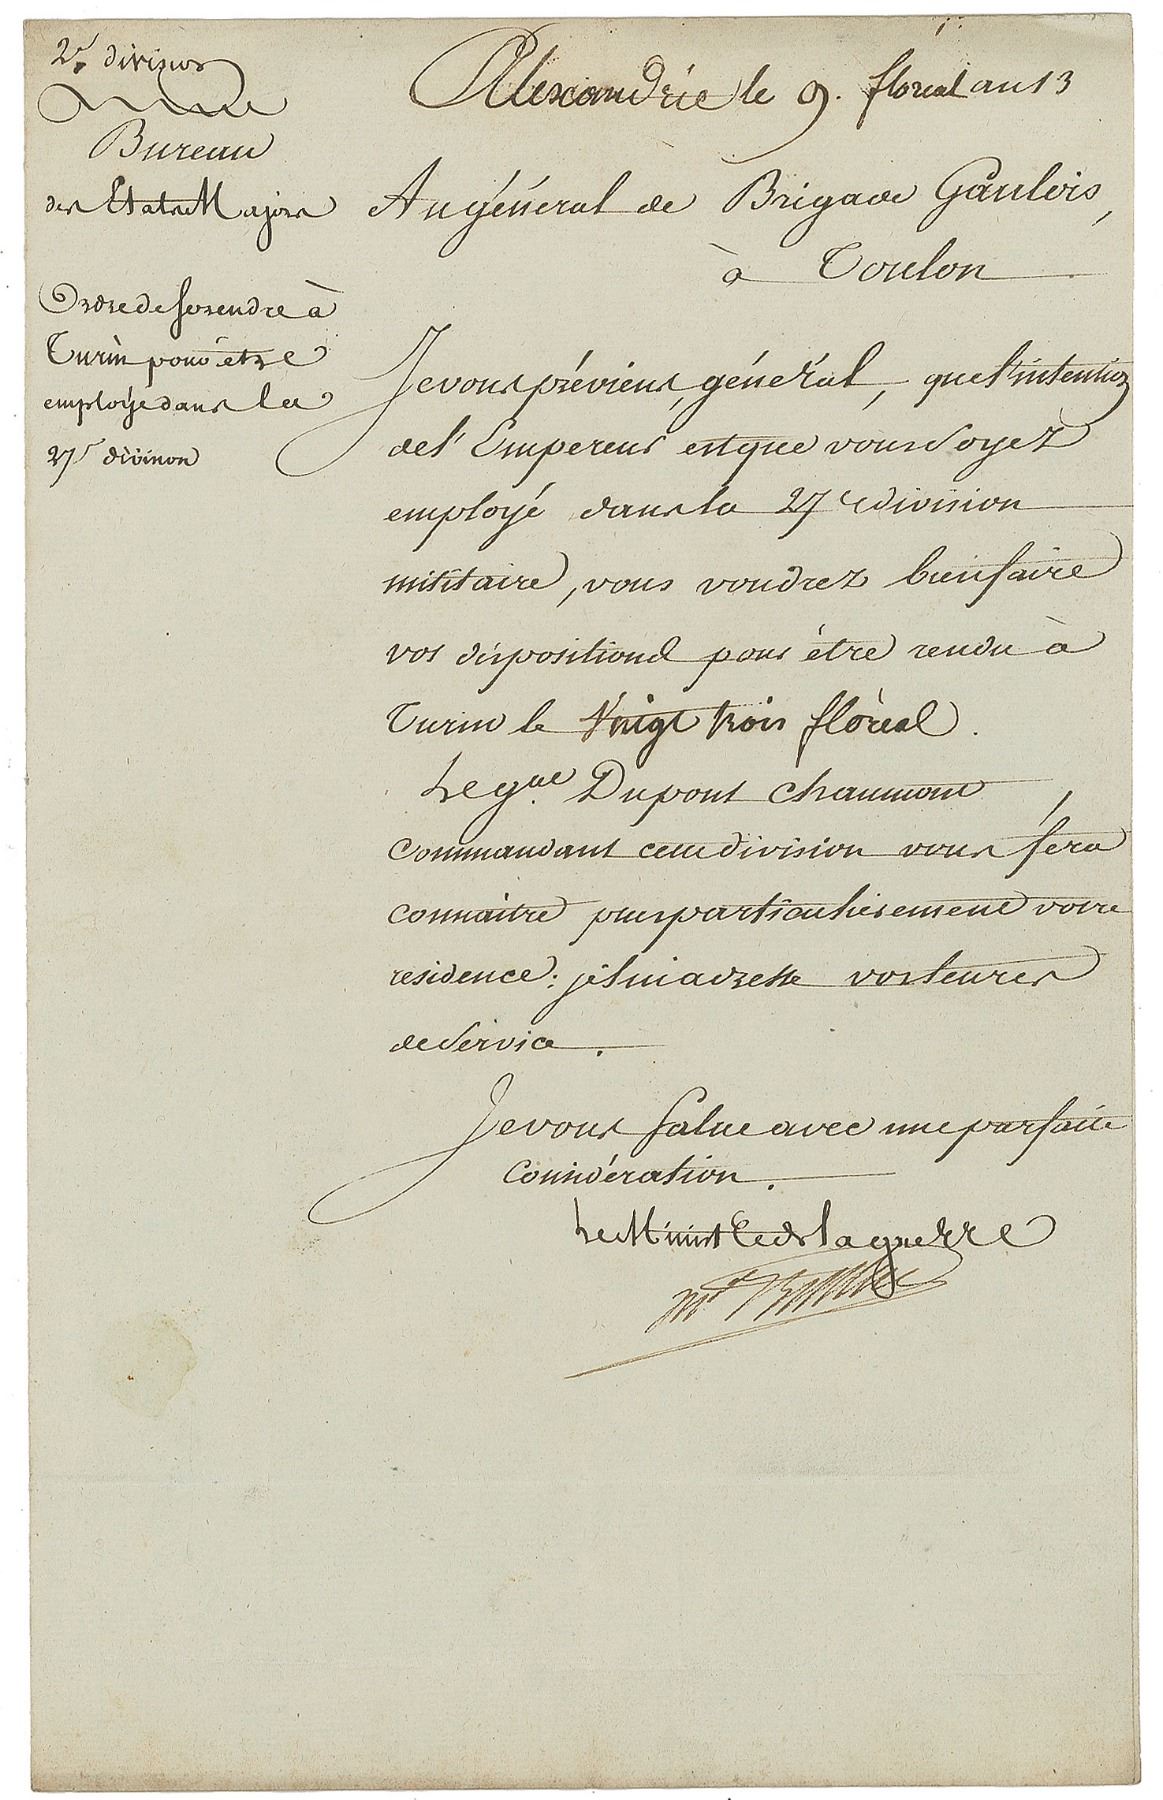 2e. division
Bureau
des Etats Majors
Ordre de se rendre à
Turin pour être
employé dans la
27e division
Alexandrie le 9. floréal an 13
Au général de Brigade Gaulois,
à Toulon
Je vous préviens, général, que l'intention
de l'Empereur est que vous soyez
employé dans la 27e division
militaire, vous voudrez bien faire
vos dispositions pour être rendu à
Turin le Vingt trois floréal.
Le gal. Dupont Chaumont
commandant cette division vous fera
connaitre plus particulièrement votre
résidence: je lui adresse vos lettres
de service.
Je vous salue avec une parfaite
considération.
Le Ministre de la guerre